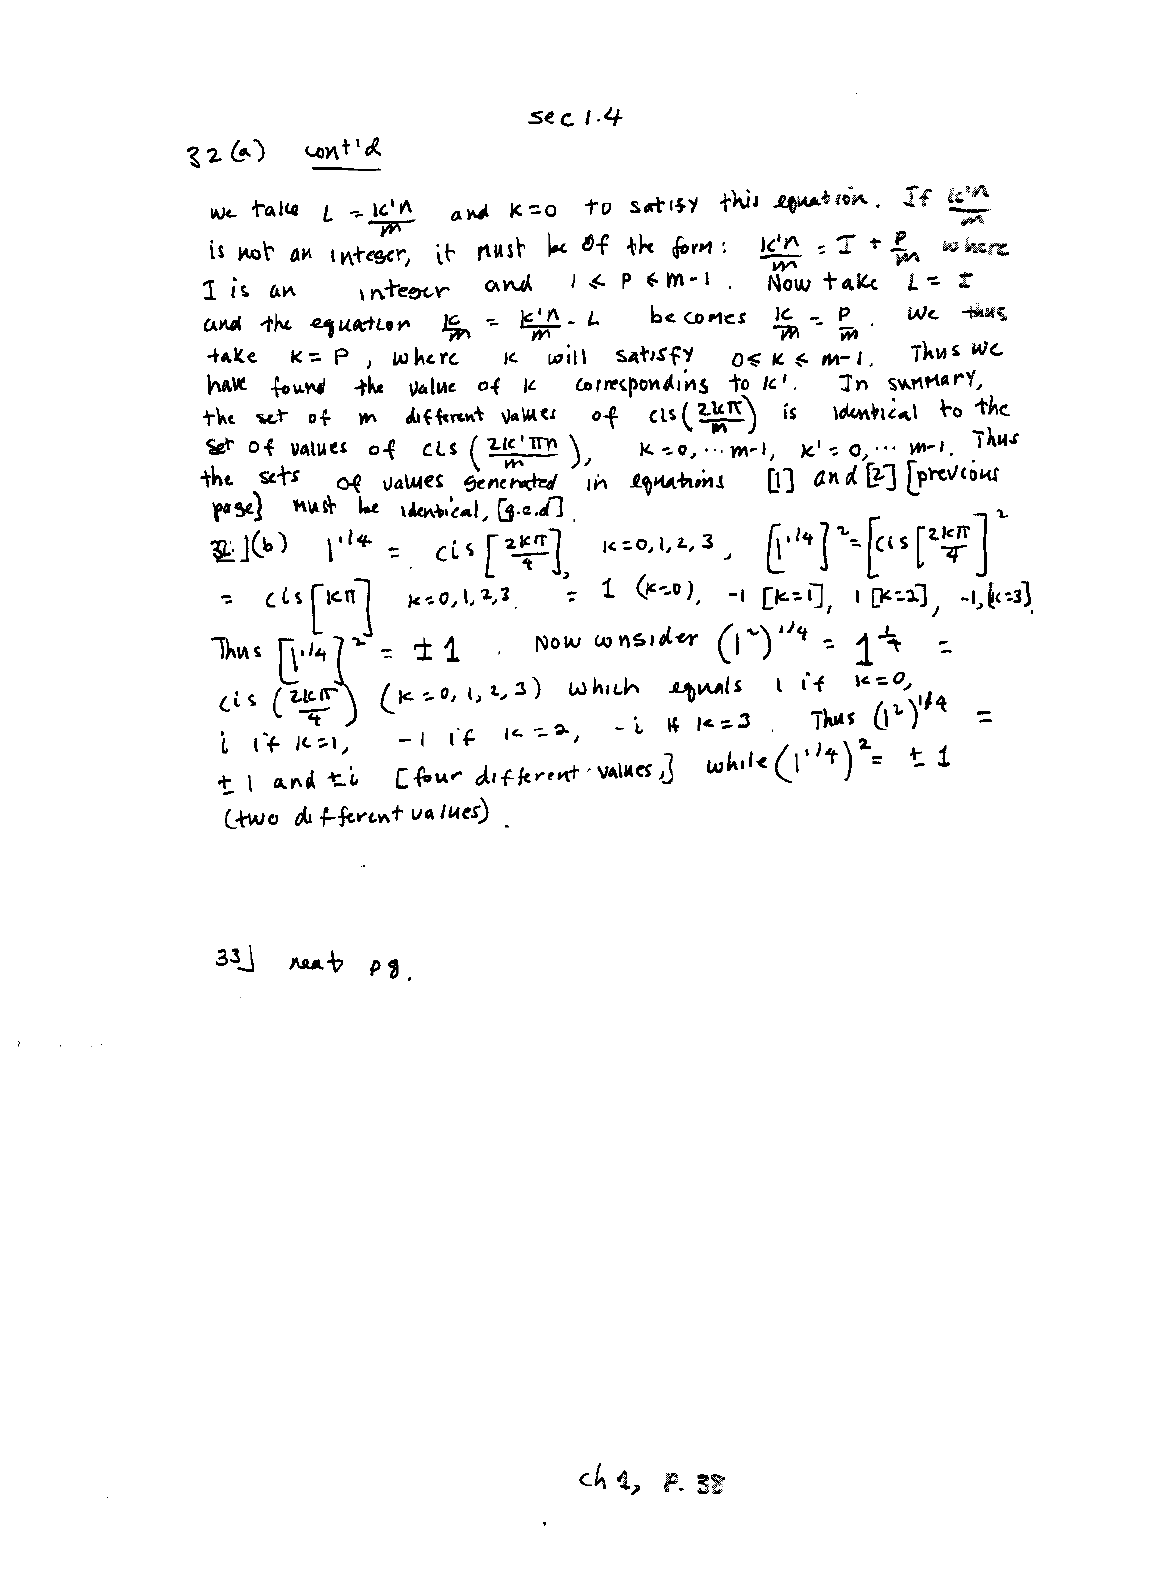 sec 1.4
32(a) cont'd
we take L = k'n/m and k=0 to satisfy this equation. If k'n/m
is not an integer, it must be of the form: k'n/m = I + p/m where
I is an integer and 1 ≤ p ≤ m-1. Now take L = I
and the equation k/m = k'n/m - L becomes k/m = p/m. We thus
take k = p, where k will satisfy 0 ≤ k ≤ m-1. Thus we
have found the value of k corresponding to k'. In summary,
the set of m different values of cis(2kπ/m) is identical to the
set of values of cis(2k'πn/m), k=0,⋯m-1, k'=0,⋯m-1. Thus
the sets of values generated in equations [1] and [2] [previous
page} must be identical, [q.e.d].
32.](b) 1^1/4 = cis[2kπ/4], k=0,1,2,3, [1^1/4]^2 = [cis[2kπ/4]^2
= cis[kπ] k=0,1,2,3. = 1 (k=0), -1 [k=1], 1 [k=2], -1,[k=3].
Thus [1^1/4]^2 = ±1. Now consider (1^2)^1/4 = 1^1/4 =
cis(2kπ/4) (k=0,1,2,3) which equals 1 if k=0,
i if k=1, -1 if k=2, -i if k=3. Thus (1^2)^1/4 =
±1 and ±i [four different values,] while (1^1/4)^2 = ±1
(two different values).
33] next pg.
ch 1, p. 38